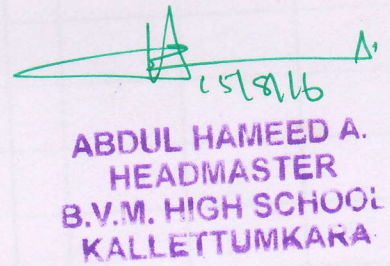 15/8/16
ABDUL HAMEED A.
HEADMASTER
B.V.M. HIGH SCHOOL
KALLETTUMKARA